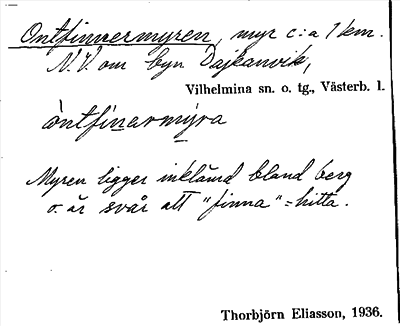 Ontfinnermyren, myr c:a 1 km.
N.V. om byn Dajkanvik,
Vilhelmina sn. o. tg., Västerb. l.
òntfìnarmýra
Myren ligger inklämd bland berg
o. är svår att "finna" = hitta.
Thorbjörn Eliasson, 1936.